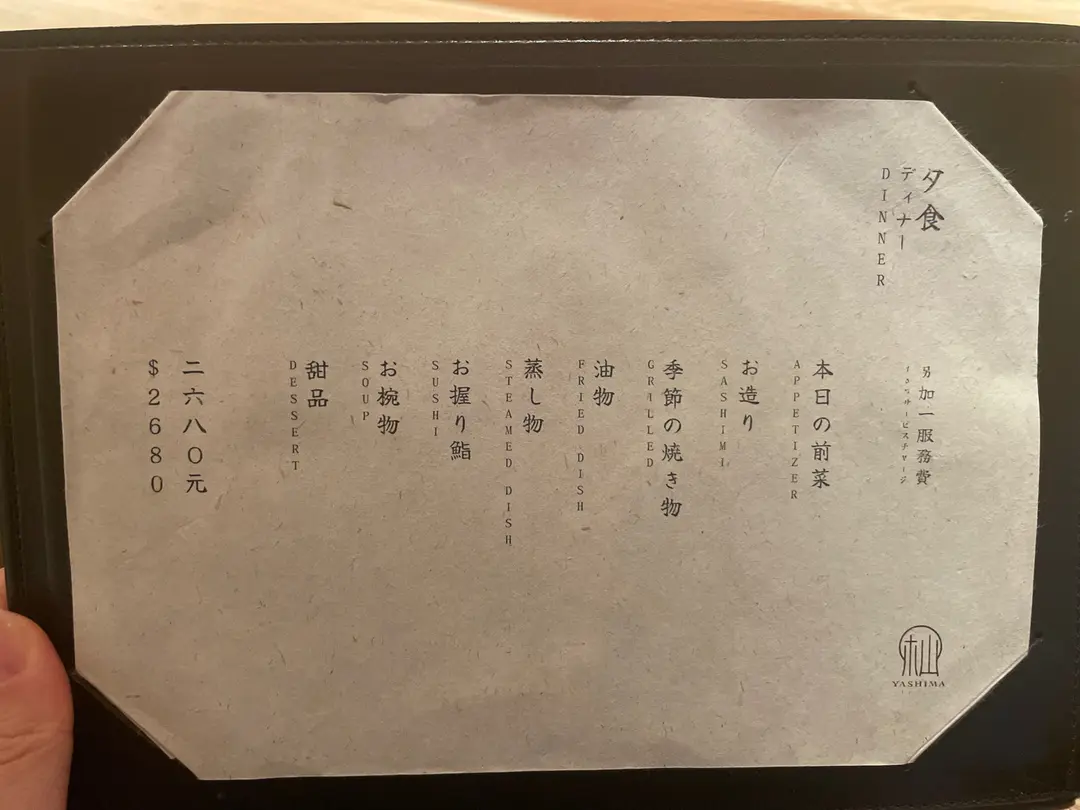 夕食
ディナー
DINNER
另加一服務費
サービスチャージ
本日の前菜
APPETIZER
お造り
SASHIMI
季節の焼き物
GRILLED
油物
FRIED DISH
蒸し物
STEAMED DISH
お握り鮨
SUSHI
お椀物
SOUP
甜品
DESSERT
二六八〇元
$2680
YASHIMA